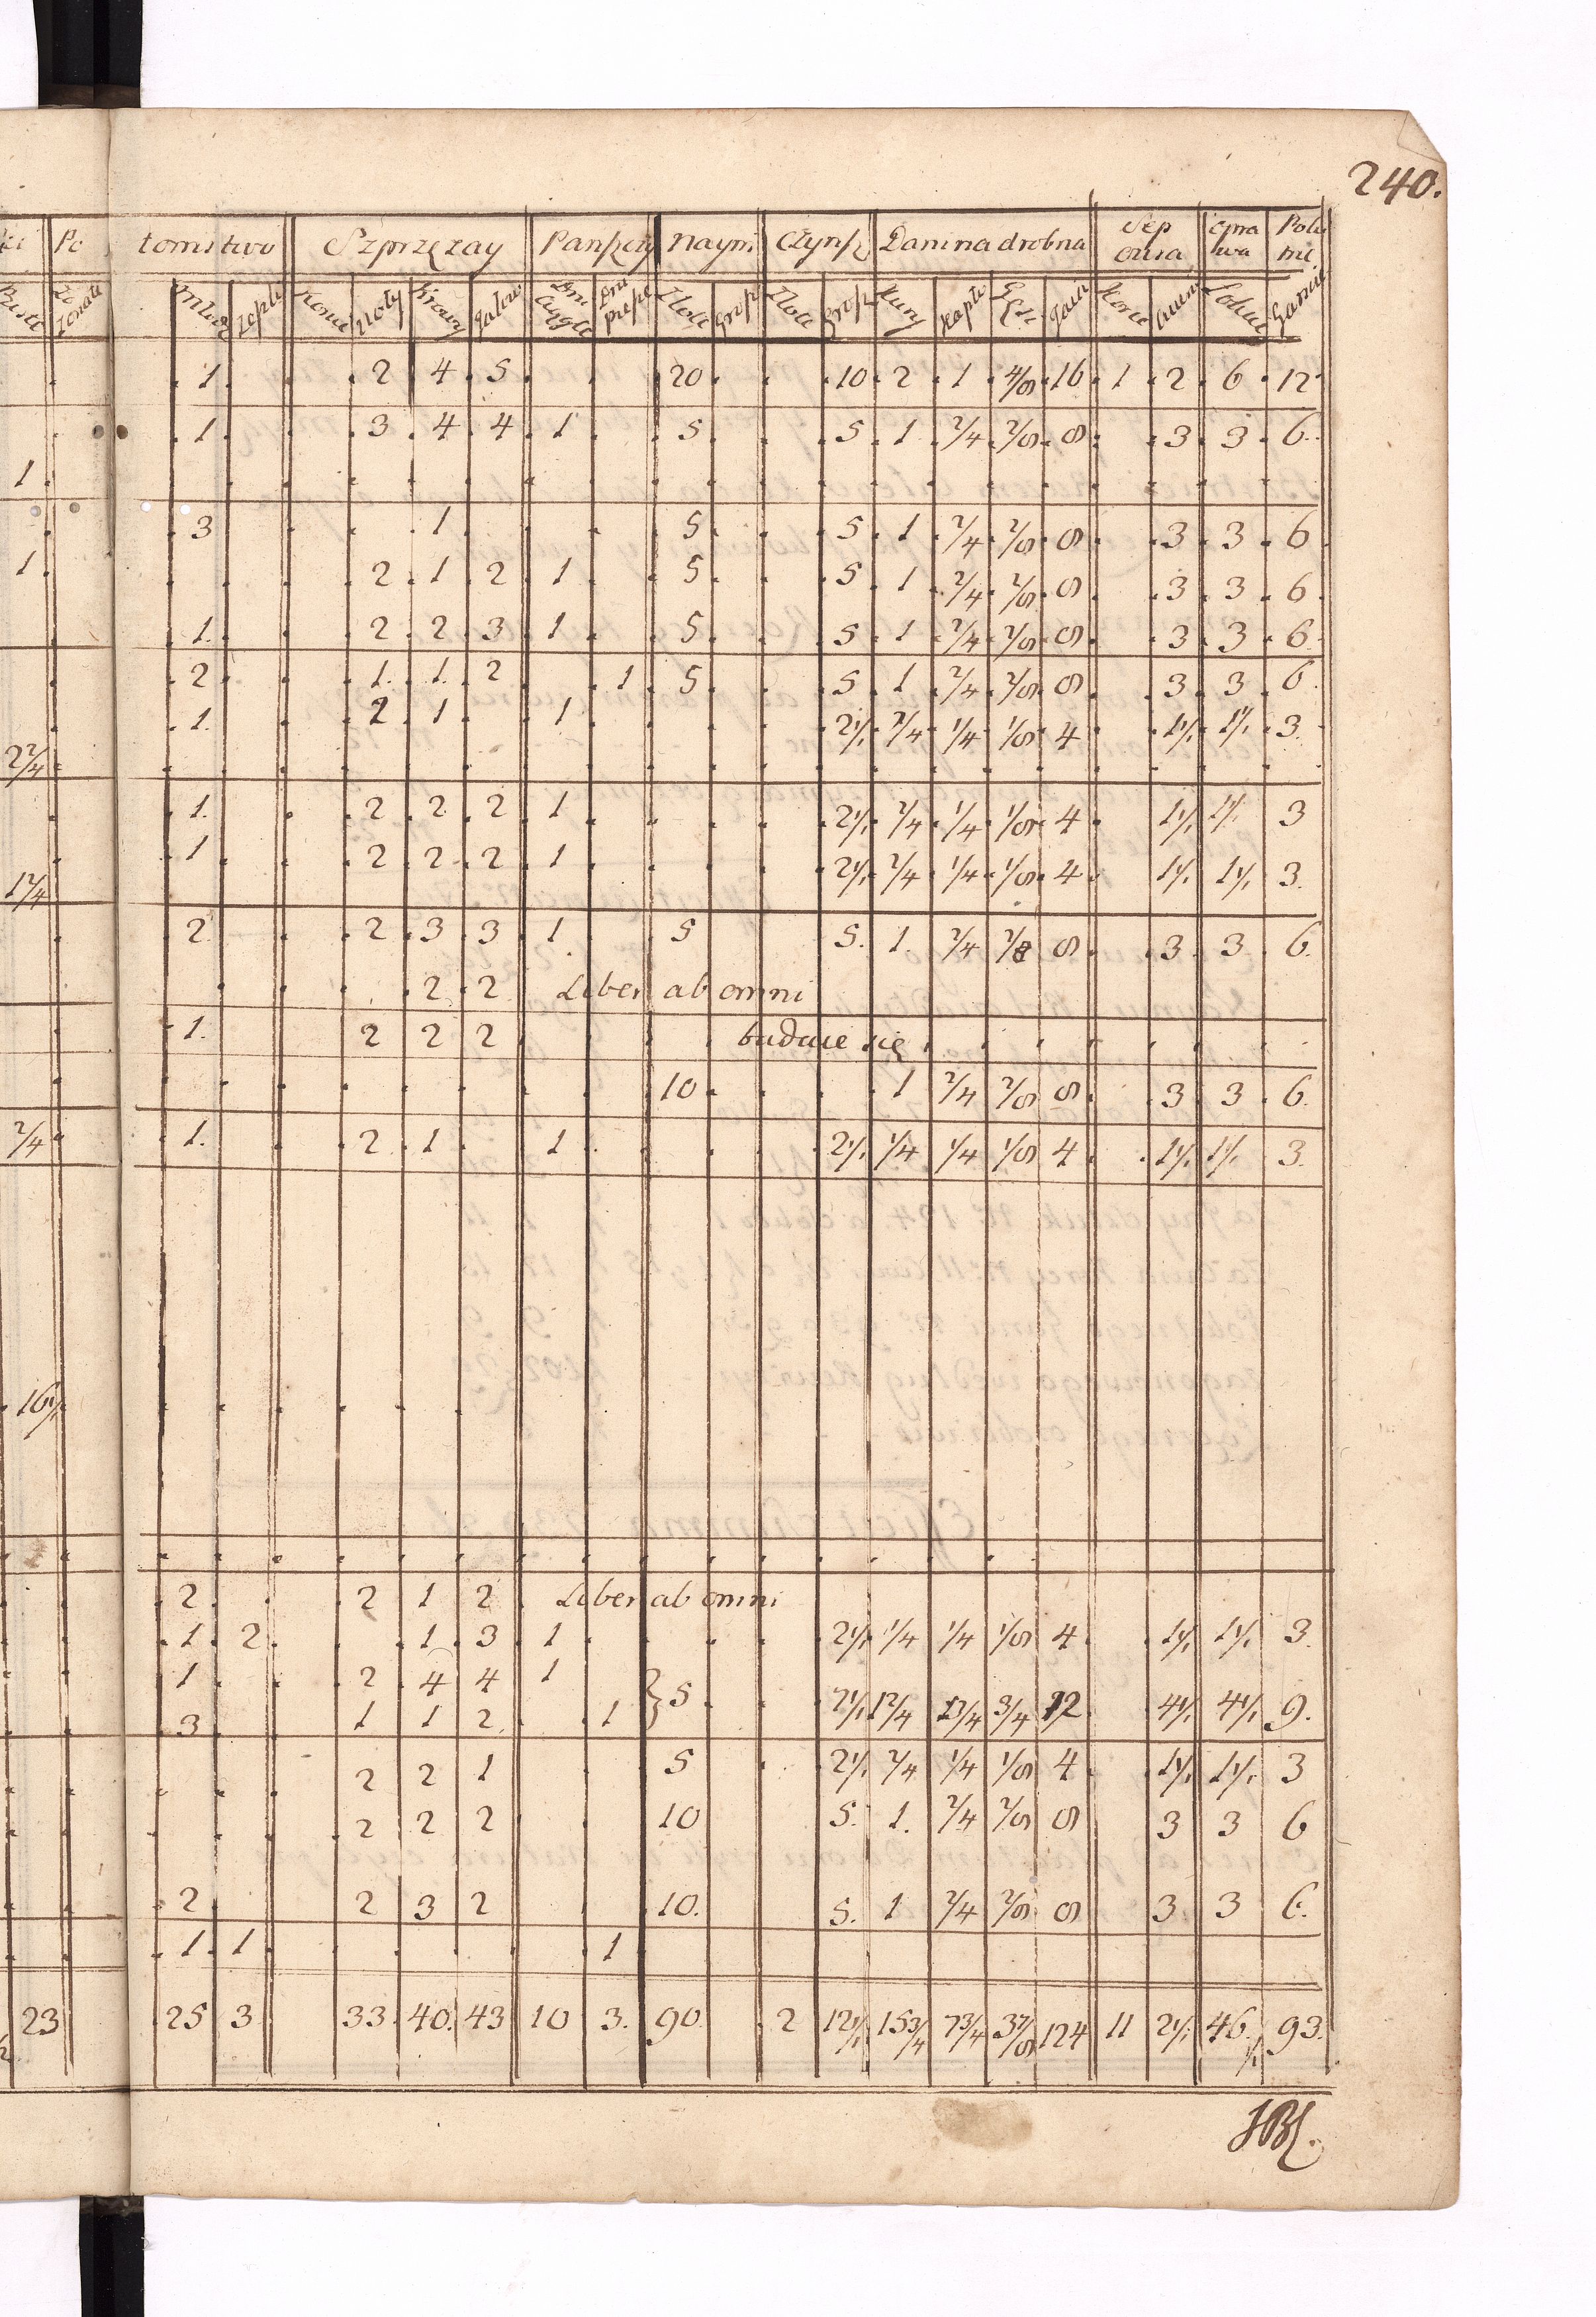 240.
Po tomstwo Szprzężay Panszczy Naym Czynsz Danina drobna Sep oma Opra wa Polu mi
Konie Woły Krowy Jałow Dni Dni piesze Złote Grosz Złote Grosz Kury Kapło Jaia Korce
1. 2 4 5 20 10 2 1 4/8 16 1 2 6 12
1. 3 4 4 1 5 5 1 2/4 2/8 8 3 3 6.
1
3 1 5 5 1 2/4 2/8 8 3 3 6
1. 2 1 2 1 5 5 1 2/4 2/8 8 3 3 6
1. 2 2 3 1 5 5 1 2/4 2/8 8 3 3 6
2 1. 1. 2 1 5 5 1 2/4 2/8 8 3 3 6
1. 2 1 1 2 1/2 2/4 1/4 1/8 4 1 1/2 1 1/2 3.
2 2/4
1. 2 2 2 1 2 1/2 2/4 1/4 1/8 4 1 1/2 1 1/2 3
1 2 2 2 1 2 1/2 2/4 1/4 1/8 4 1 1/2 1 1/2 3.
1 2/4
2 2 3 3 1 5 5. 1. 2/4 2/8 8 3 3 6
2 2 Liber ab omni
1. 2 2 2 buduie się
10 1 2/4 2/8 8 3 3 6
2/4 1. 2 1 1 2 1/2 1/4 1/4 1/8 4 1 1/2 1 1/2 3.
16 1/2
2 2 1 2 Liber ab omni
1 2 1 3 1 2 1/2 1/4 1/4 1/8 4 1 1/2 1 1/2 3.
1 2 4 4 1
3 1 1 2 1 } 5 2 1/2 1 2/4 3/4 12 4 1/2 4 1/2 9.
2 2 1 5 2 1/2 2/4 1/4 1/8 4 1 1/2 1 1/2 3
2 2 2 10 5. 1. 2/4 2/8 8 3 3 6
2 2 3 2 10. 5. 1 2/4 2/8 8 3 3 6.
1 1 1
23 25 3 33 40. 43 10 3. 90. 2 12 1/2 15 3/4 7 3/4 3 7/8 124 11 2 1/2 46 1/2 93.